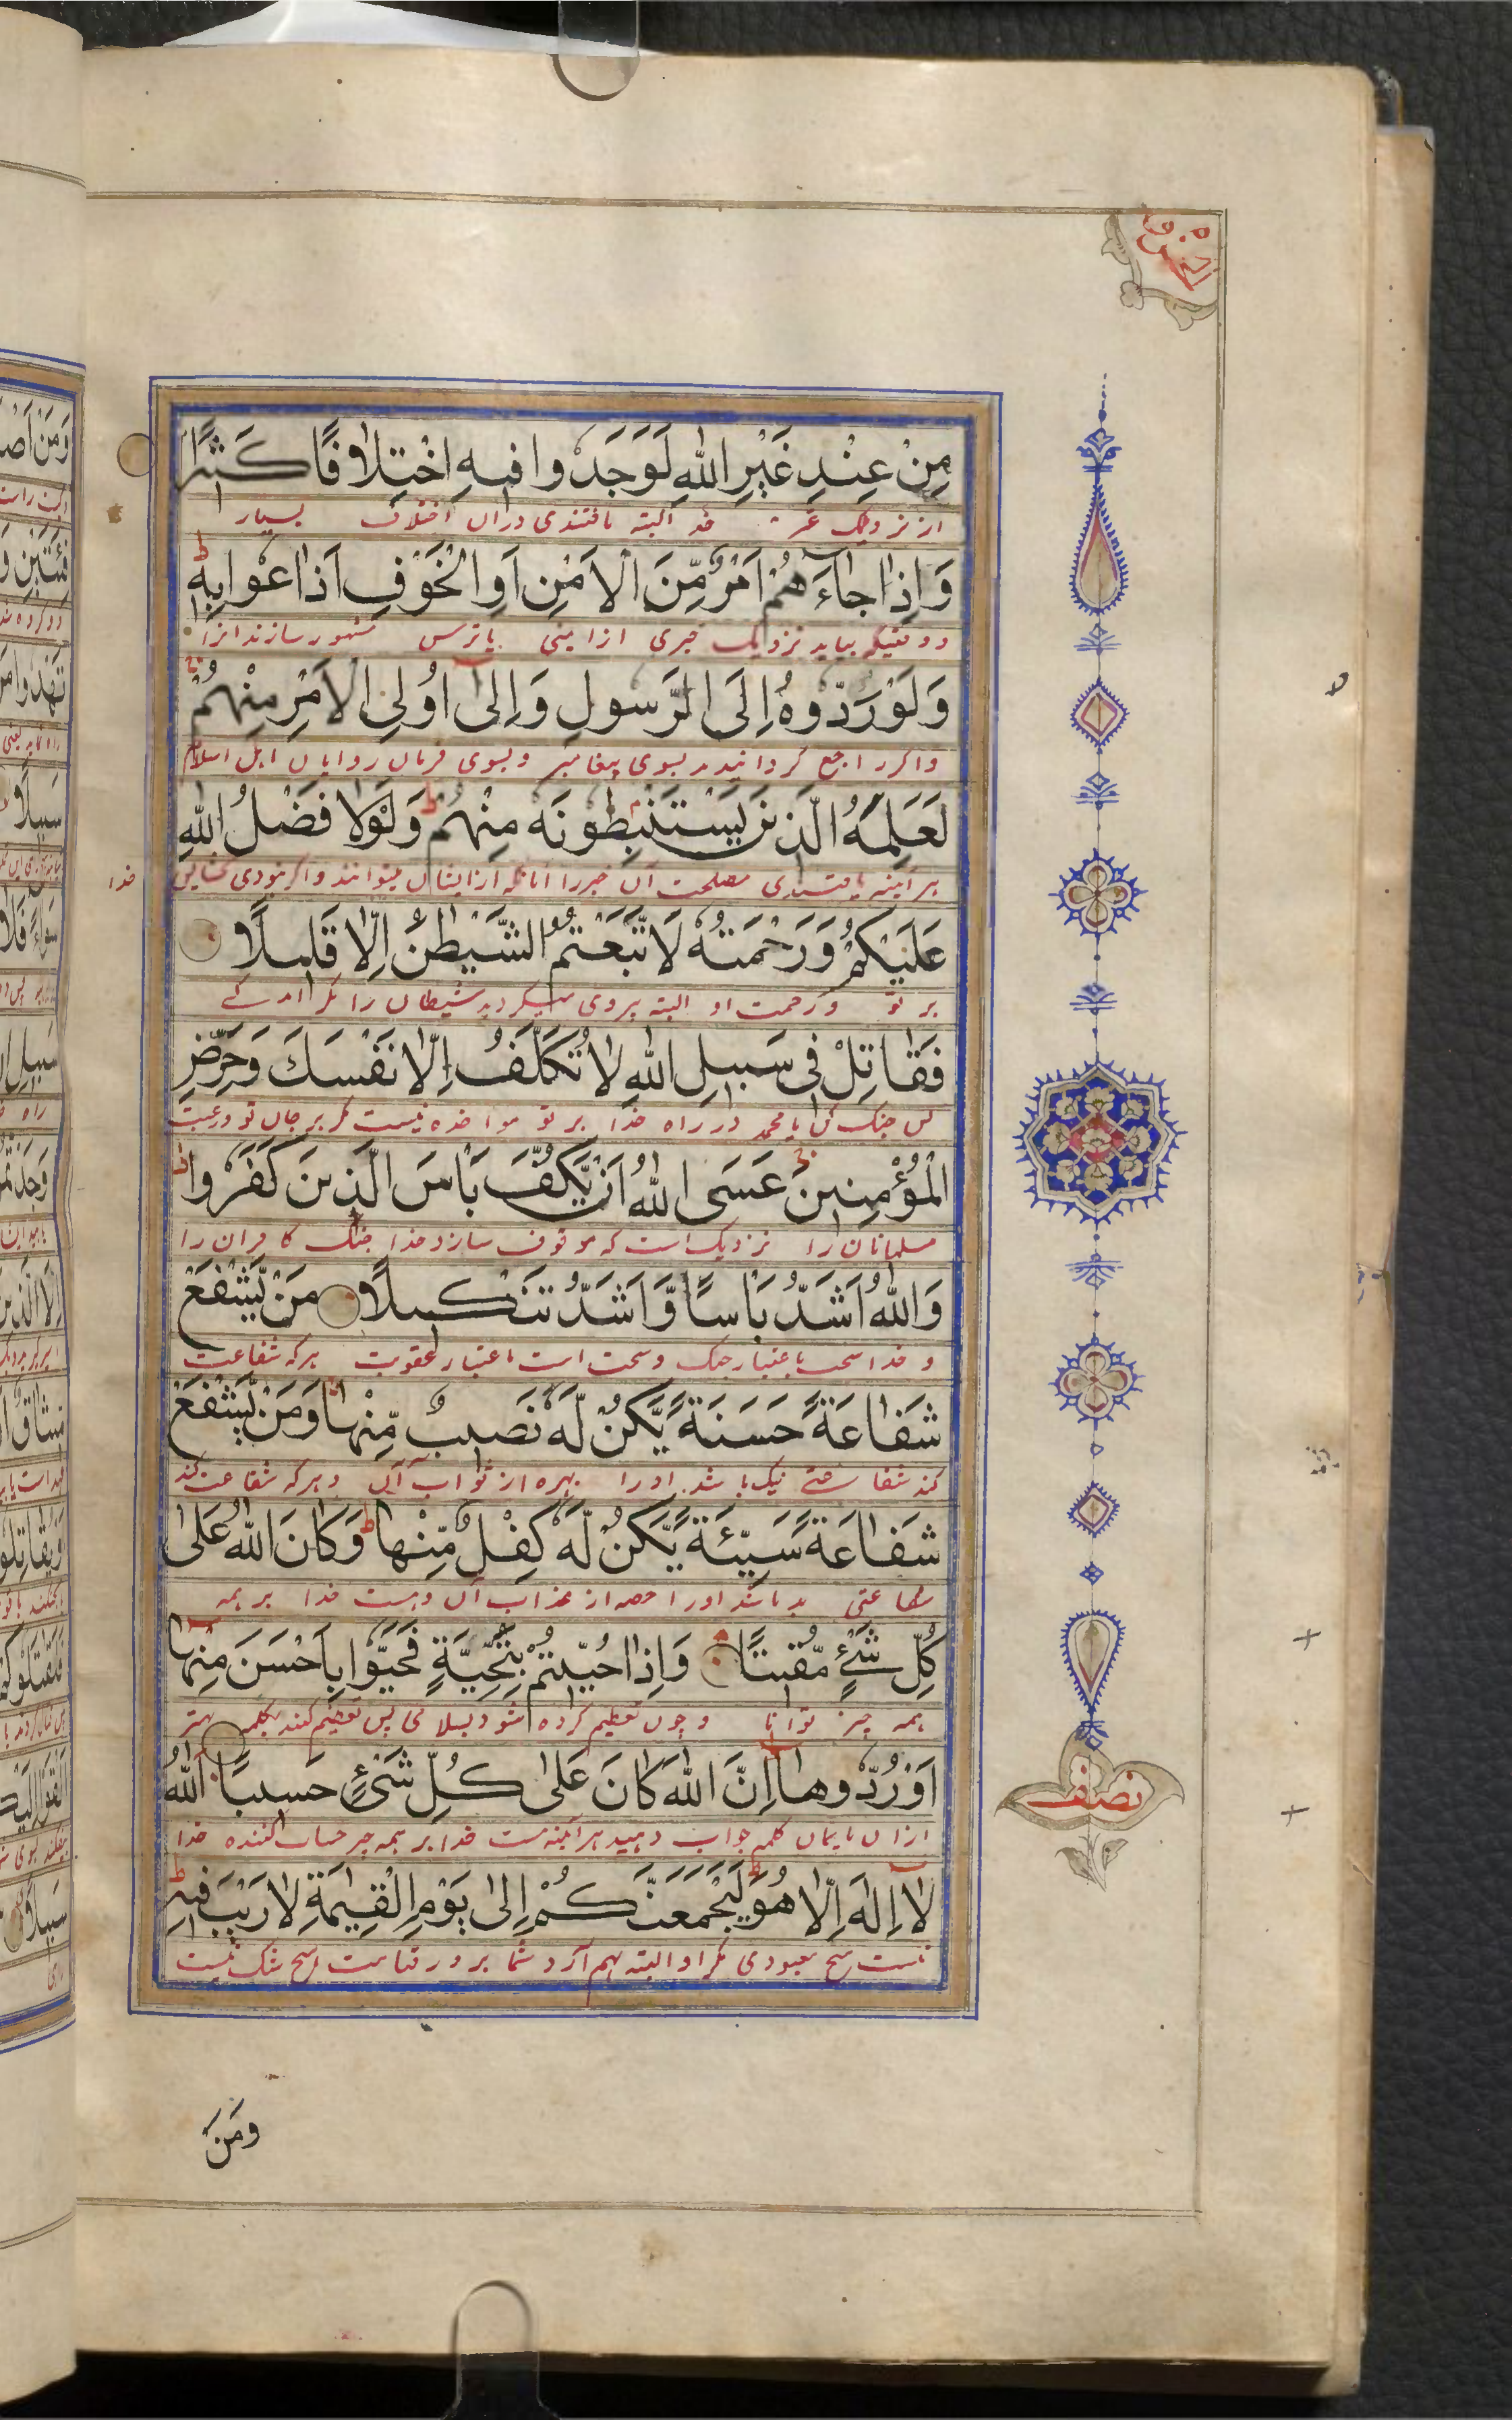 مِنْ عِنْدِ غَيْرِ اللهِ لَوَجَدُوا فِيهِ اخْتِلَافًا كَثِيرًا
از نزدیک غیر خدا البته یافتندی دران اختلاف بسیار
وَاِذَا جَاءَهُمْ اَمْرٌ مِّنَ الْاَمْنِ اَوِ الْخَوْفِ اَذَاعُوا بِهِ ط
و وقتیکه بیاید نزدیک خبری از ایمنی یا ترس مشهور سازند انرا
وَلَوْ رَدُّوهُ اِلَى الرَّسُولِ وَاِلٰى اُولِي الْاَمْرِ مِنْهُمْ
و اگر راجع گردانیدند بسوی پیغامبر و بسوی فرمان روایان اهل اسلام
لَعَلِمَهُ الَّذِينَ يَسْتَنْبِطُونَهُ مِنْهُمْ ط وَلَوْلَا فَضْلُ اللهِ
هر آینه یافتندی مصلحت آن خبر را آنانکه از ایشان میتوانند و اگر نبودی بخشایش خدا
عَلَيْكُمْ وَرَحْمَتُهُ لَاتَّبَعْتُمُ الشَّيْطٰنَ اِلَّا قَلِيلًا
بر تو و رحمت او البته پیروی میکردید شیطان را مگر اندکے
فَقَاتِلْ فِي سَبِيلِ اللهِ لَا تُكَلَّفُ اِلَّا نَفْسَكَ وَحَرِّضِ
پس جنگ کن یا محمد در راه خدا بر تو مواخذه نیست مگر بر جان تو و رغبت
الْمُؤْمِنِينَ عَسَى اللهُ اَنْ يَّكُفَّ بَاْسَ الَّذِينَ كَفَرُوا ط
مسلمانان را نزدیک است که موقوف سازد خدا جنگ کافران را
وَاللهُ اَشَدُّ بَاْسًا وَّاَشَدُّ تَنْكِيلًا مَنْ يَّشْفَعْ
و خدا سخت باعتبار جنگ و سخت است باعتبار عقوبت هر که شفاعت
شَفَاعَةً حَسَنَةً يَّكُنْ لَّهُ نَصِيبٌ مِّنْهَا وَمَنْ يَّشْفَعْ
کند شفاعتے نیک باشد او را بهره از ثواب آن و هر که شفاعت کند
شَفَاعَةً سَيِّئَةً يَّكُنْ لَّهُ كِفْلٌ مِّنْهَا ط وَكَانَ اللهُ عَلٰى
شفاعتی بد باشد او را حصه از عذاب آن و هست خدا بر همه
كُلِّ شَيْءٍ مُّقِيتًا وَاِذَا حُيِّيتُمْ بِتَحِيَّةٍ فَحَيُّوا بِاَحْسَنَ مِنْهَا
همه چیز توانا و چون تعظیم کرده شود بسلامی پس تعظیم کنند بکلمه بهتر
اَوْ رُدُّوهَا اِنَّ اللهَ كَانَ عَلٰى كُلِّ شَيْءٍ حَسِيبًا اَللهُ
ازان یا همان کلمه جواب دهید هر آینه هست خدا بر همه چیز حساب کننده خدا
لَا اِلٰهَ اِلَّا هُوَ ط لَيَجْمَعَنَّكُمْ اِلٰى يَوْمِ الْقِيٰمَةِ لَا رَيْبَ فِيهِ ط
نیست هیچ معبودی مگر او البته بهم آرد شما بروز قیامت هیچ شک نیست
نصف
وَمَنْ